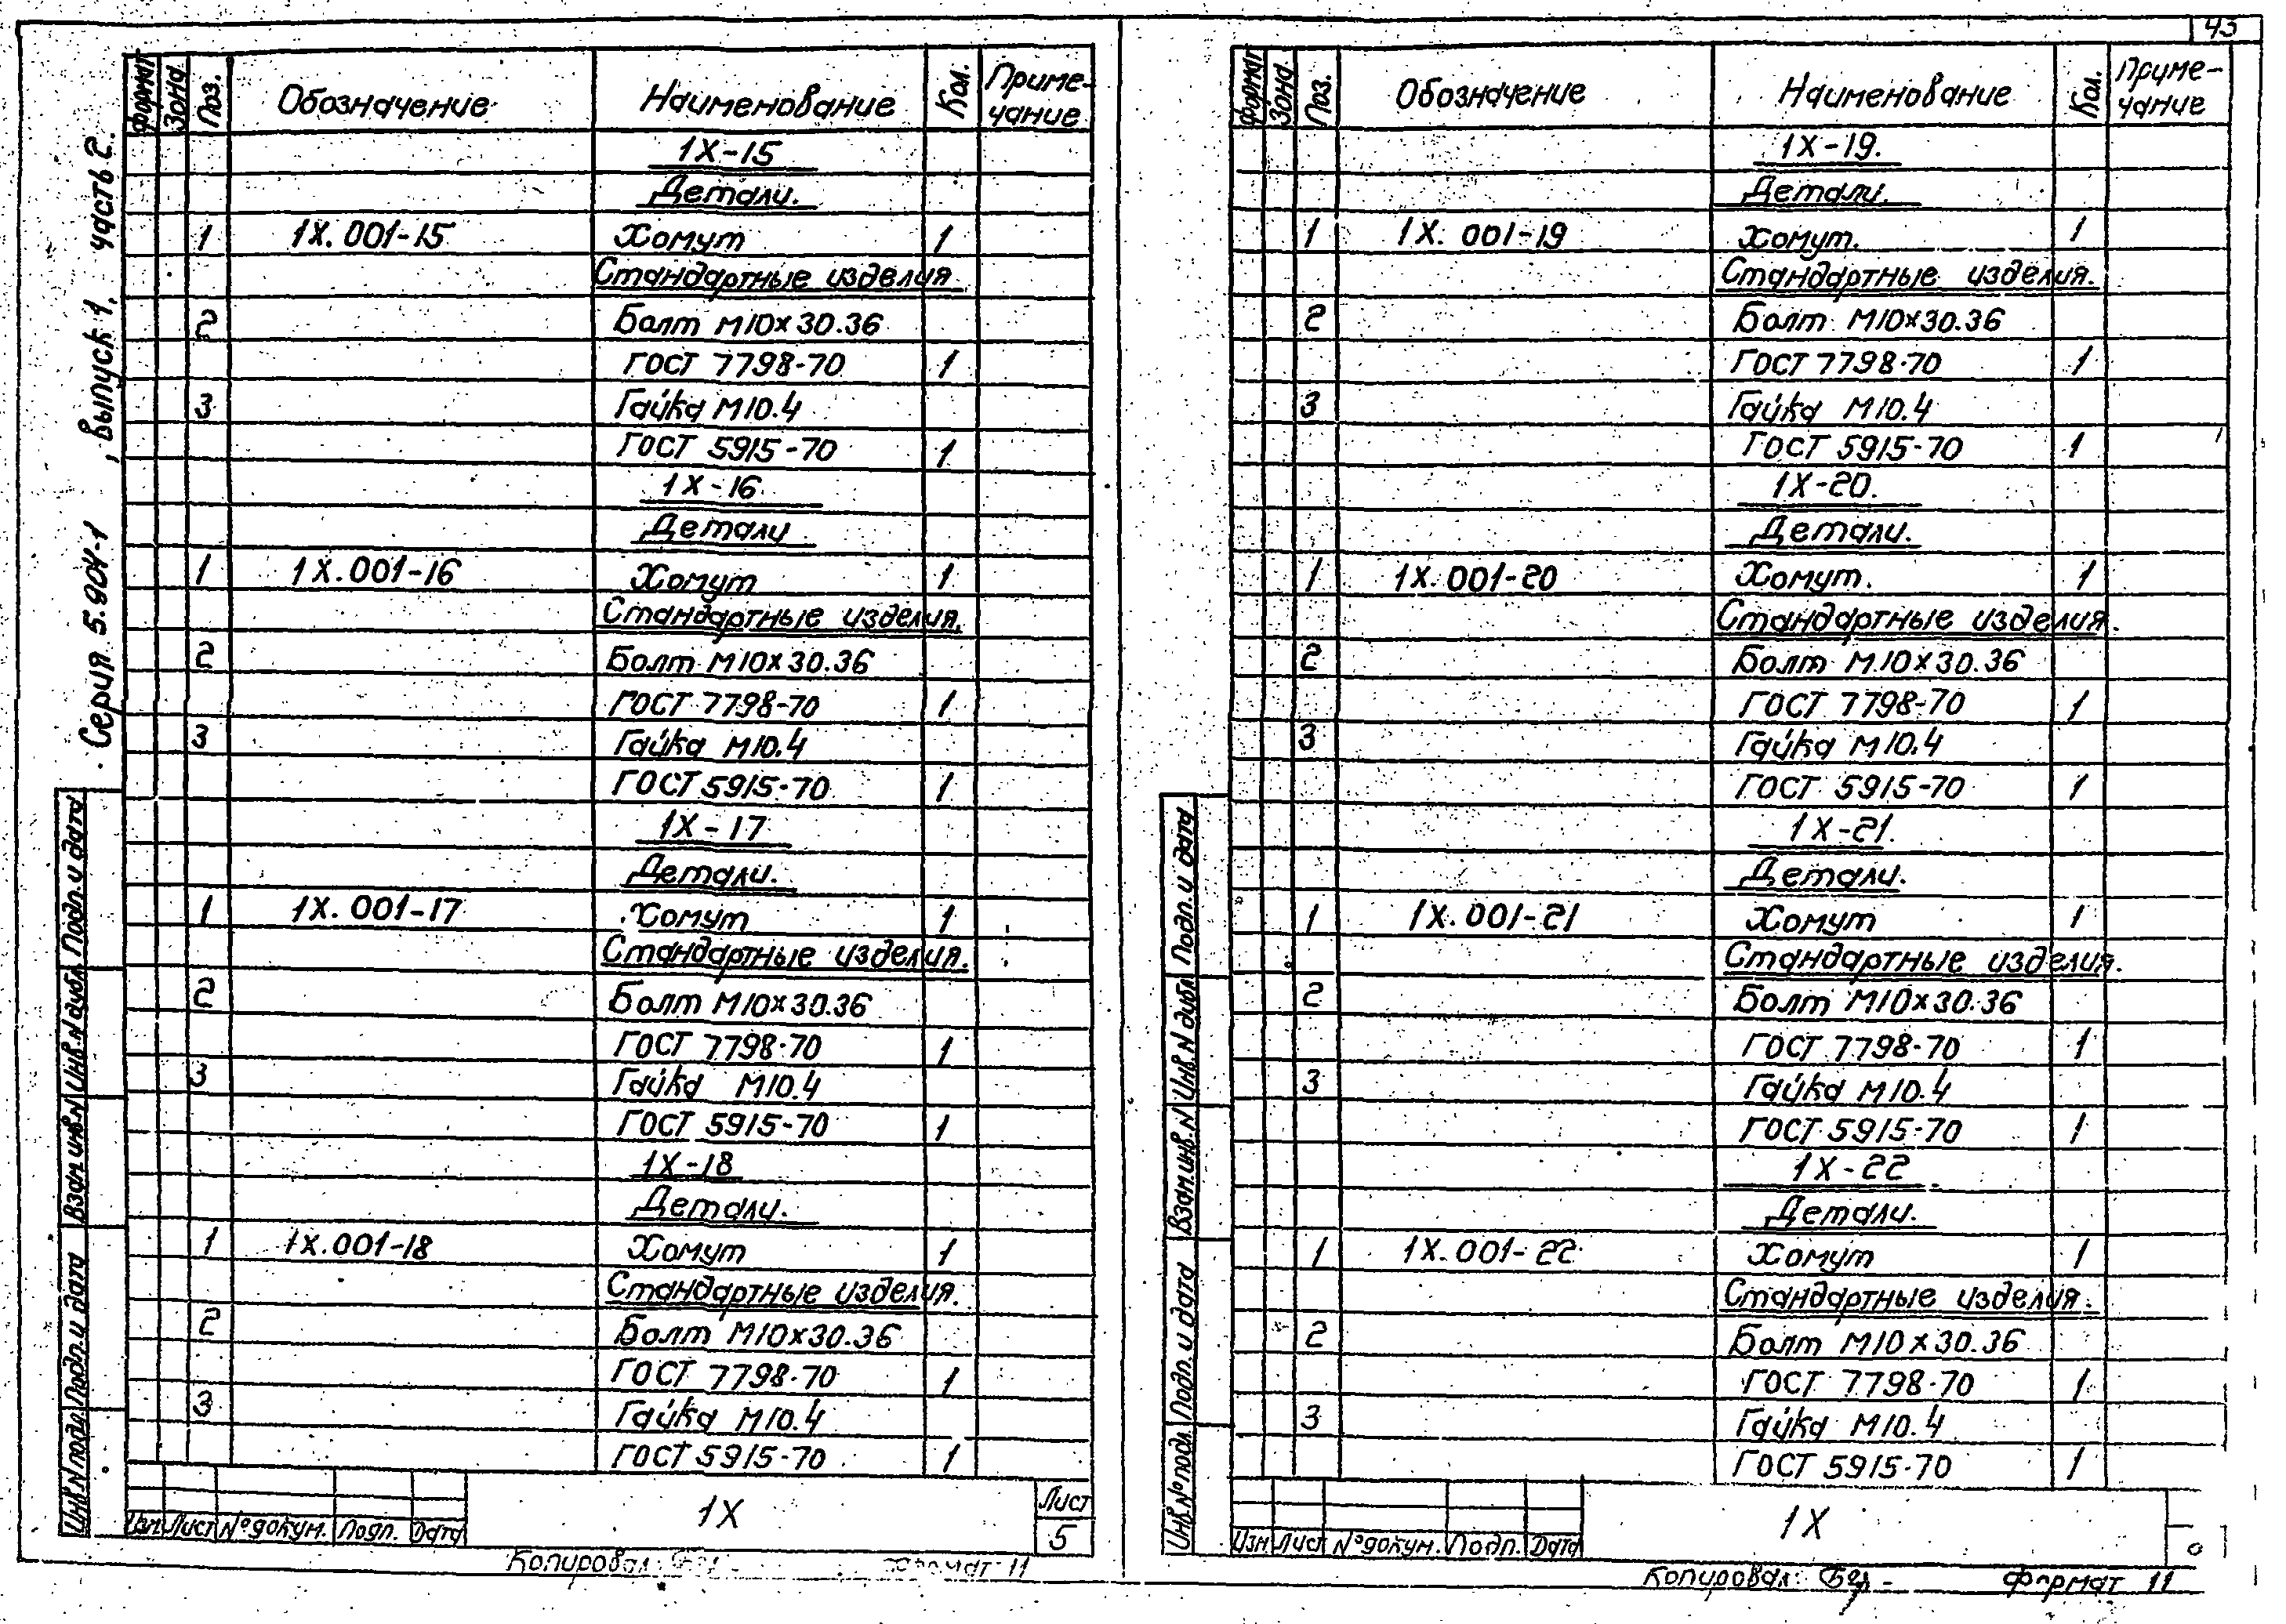 43
Серия 5.904-1 , выпуск 1, часть 2.
Формат Зона Поз. Обозначение Наименование Кол. Приме-
чание
1Х-15
Детали.
1 1Х.001-15 Хомут 1
Стандартные изделия
2 Болт М10х30.36
ГОСТ 7798-70 1
3 Гайка М10.4
ГОСТ 5915-70 1
1Х-16
Детали
1 1Х.001-16 Хомут 1
Стандартные изделия.
2 Болт М10х30.36
ГОСТ 7798-70 1
3 Гайка М10.4
ГОСТ 5915-70 1
1Х-17
Детали.
1 1Х.001-17 Хомут 1
Стандартные изделия.
2 Болт М10х30.36
ГОСТ 7798-70 1
3 Гайка М10.4
ГОСТ 5915-70 1
1Х-18
Детали.
1 1Х.001-18 Хомут 1
Стандартные изделия.
2 Болт М10х30.36
ГОСТ 7798-70 1
3 Гайка М10.4
ГОСТ 5915-70 1
Инв.N подл. Подп. и дата Взам.инв.N Инв.N дубл. Подп. и дата
Изм Лист N°докум. Подп. Дата
1Х
Лист
5
Копировал: Формат 11
Формат Зона Поз. Обозначение Наименование Кол. Приме-
чание
1Х-19.
Детали.
1 1Х.001-19 Хомут. 1
Стандартные изделия.
2 Болт М10х30.36
ГОСТ 7798-70 1
3 Гайка М10.4
ГОСТ 5915-70 1
1Х-20.
Детали.
1 1Х.001-20 Хомут. 1
Стандартные изделия.
2 Болт М10х30.36
ГОСТ 7798-70 1
3 Гайка М10.4
ГОСТ 5915-70 1
1Х-21.
Детали.
1 1Х.001-21 Хомут 1
Стандартные изделия.
2 Болт М10х30.36
ГОСТ 7798-70 1
3 Гайка М10.4
ГОСТ 5915-70 1
1Х-22
Детали.
1 1Х.001-22 Хомут 1
Стандартные изделия.
2 Болт М10х30.36
ГОСТ 7798-70 1
3 Гайка М10.4
ГОСТ 5915-70 1
Инв.N°подл. Подп. и дата Взам.инв.N Инв.N дубл. Подп. и дата
Изм Лист N°докум. Подп. Дата
1Х
Копировал: Формат 11